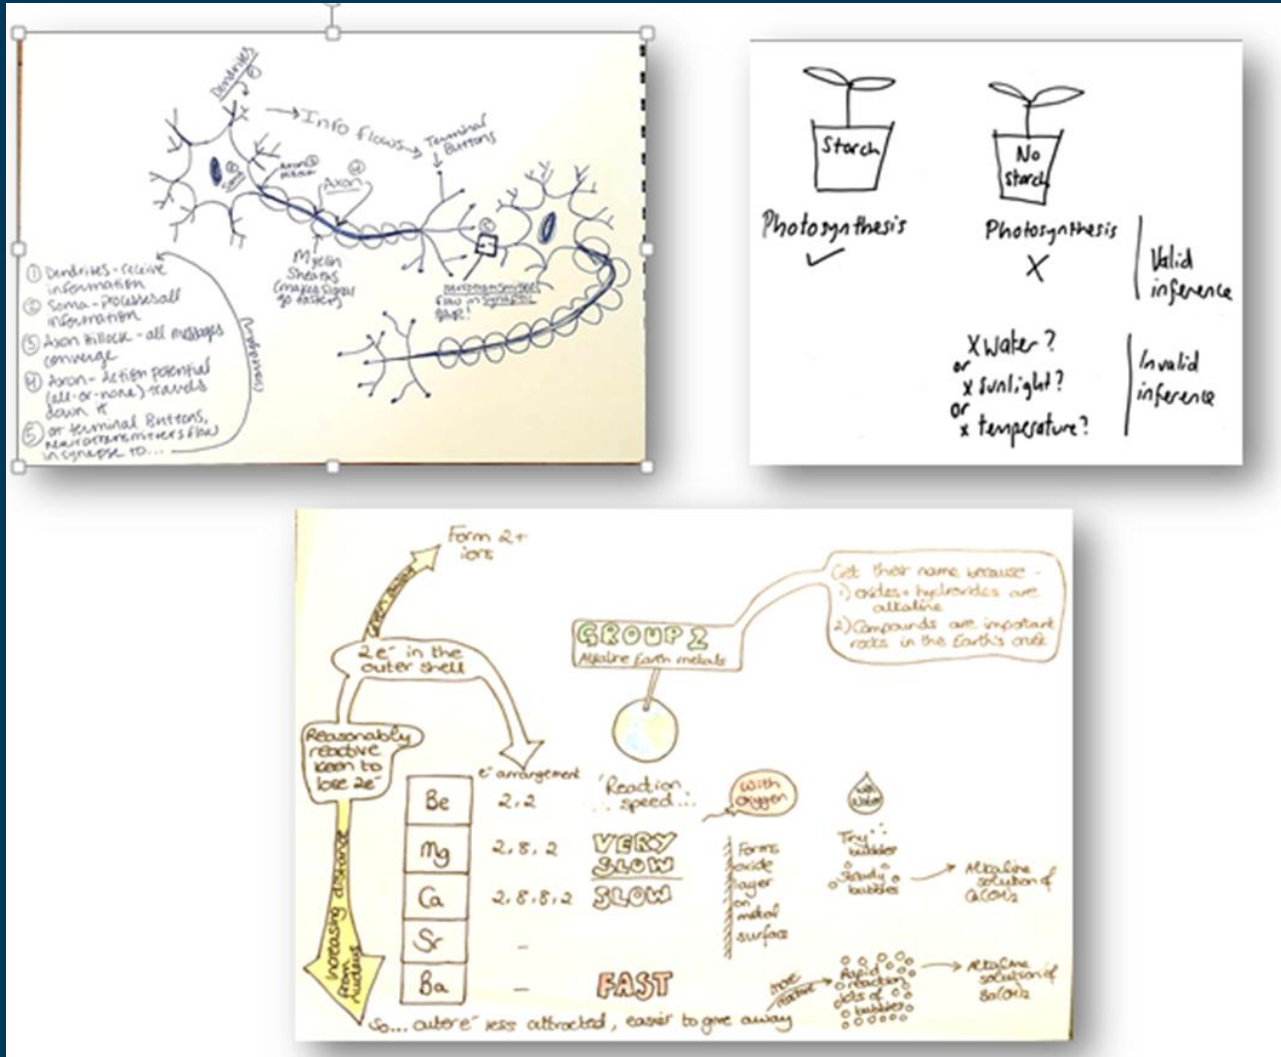 Dendrites
①
→ Info flows →
Terminal
Buttons
②
Soma
Axon ③
④
Axon
Myelin
Sheaths
(makes signal
go faster)
⑤
flow in synaptic
gap!
① Dendrites - receive
information
② Soma - processes all
information
③ Axon Hillock - all messages
converge
④ Axon - Action potential
(all-or-none) travels
down it
⑤ at terminal Buttons,
neurotransmitters flow
in synapse to...
Starch
No
starch
Photosynthesis
✓
Photosynthesis
X
Valid
inference
x Water?
or
x sunlight?
or
x temperature?
Invalid
inference
Form 2+
ions
Given away
2e⁻ in the
outer shell
Reasonably
reactive
keen to
lose 2e⁻
Increasing distance
from
nucleus
GROUP 2
Alkaline Earth metals
Get their name because -
1) oxides + hydroxides are
alkaline
2) Compounds are important
rocks in the Earth's crust
e⁻ arrangement
Reaction
speed...
With
oxygen
with
water
Be 2,2
Mg 2,8,2
VERY
SLOW
Ca 2,8,8,2
SLOW
Sr -
Ba -
FAST
Forms
oxide
layer
on
metal
surface
Tiny
bubbles
Steady
bubbles
Alkaline
solution of
Ca(OH)2
more
reactive
Rapid
reaction
lots of
bubbles
Alkaline
solution of
Ba(OH)2
So... outer e⁻ less attracted, easier to give away